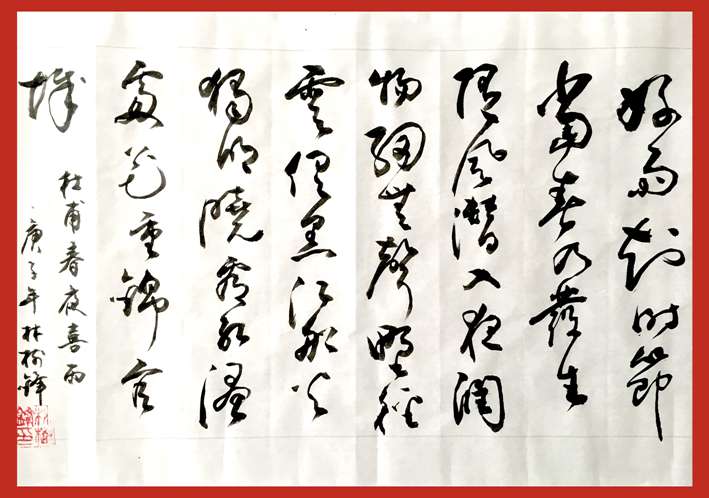 好雨知时節
當春乃發生
随風潛入夜潤
物細無聲野徑
雲俱黑江船火
獨明曉看紅濕
處花重錦官
城
杜甫春夜喜雨
庚子年林鋒